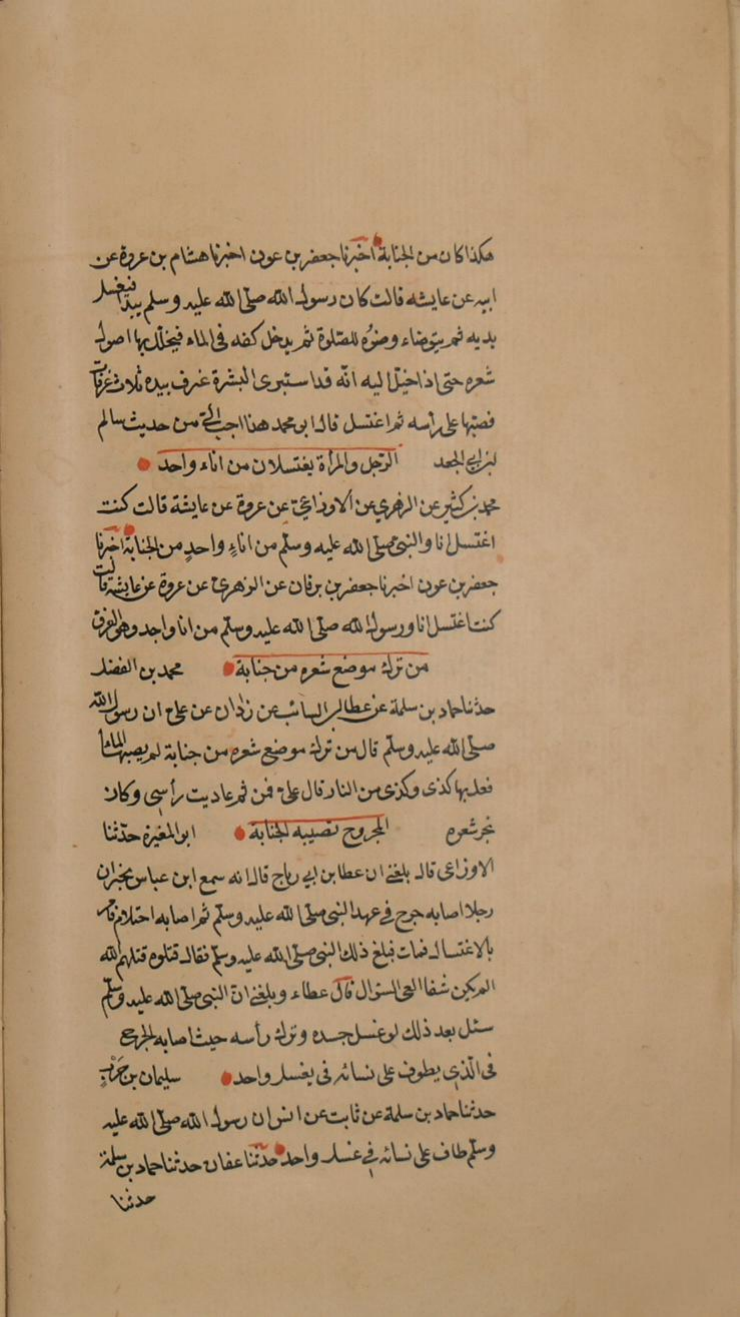 هكذا كان من الجنابة اخبرنا جعفر بن عون اخبرنا هشام بن عروة عن
ابيه عن عايشه قالت كان رسول الله صلى الله عليه وسلم يبدا فيغسل
يديه ثم يتوضاء وضوءه للصلوة ثم يدخل كفه فى الماء فيخلل بها اصول
شعره حتى اذا خيل اليه انه قد استبرى البشرة غرف بيده ثلاث غرفات
فصبها على رأسه ثم اغتسل قال ابو محمد هذا احب الىّ من حديث سالم
بن ابي الجعد الرجل والمرأة يغتسلان من اناء واحد
محمد بن كثير عن الزهري عن الاوزاعي عن عروة عن عايشة قالت كنت
اغتسل انا والنبي صلى الله عليه وسلم من اناءٍ واحدٍ من الجنابة اخبرنا
جعفر بن عون اخبرنا جعفر بن برقان عن الزهرى عن عروة عن عايشة قالت
كنت اغتسل انا ورسول الله صلى الله عليه وسلم من انا واحد وهو الفرق
من ترك موضع شعره من جنابة محمد بن الفضل
حدثنا حماد بن سلمة عن عطا بن السائب عن زاذان عن على ان رسول الله
صلى الله عليه وسلم قال من ترك موضع شعره من جنابة لم يصبها الماء
فعل بها كذى وكذى من النار قال على فمن ثم عاديت رأسى وكان
يجز شعره المجروح تصيبه الجنابة ابو المغيرة حدثنا
الاوزاعى قال بلغنى ان عطا بن ابي رباح قال انه سمع ابن عباس يخبر ان
رجلا اصابه جرح فى عهد النبى صلى الله عليه وسلم ثم اصابه احتلام فامر
بالاغتسال فمات فبلغ ذلك النبى صلى الله عليه وسلم فقال قتلوه قتلهم الله
الم يكن شفا العى السؤال قال عطاء وبلغنى ان النبى صلى الله عليه وسلم
سئل بعد ذلك لو غسل جسده وترك رأسه حيث اصابه الجرح
فى الذى يطوف على نسائه فى يغسل واحد سليمان بن حرب
حدثنا حماد بن سلمة عن ثابت عن انس ان رسول الله صلى الله عليه
وسلم طاف على نسائه في غسل واحد حدثنا عفان حدثنا حماد بن سلمة
حدثنا